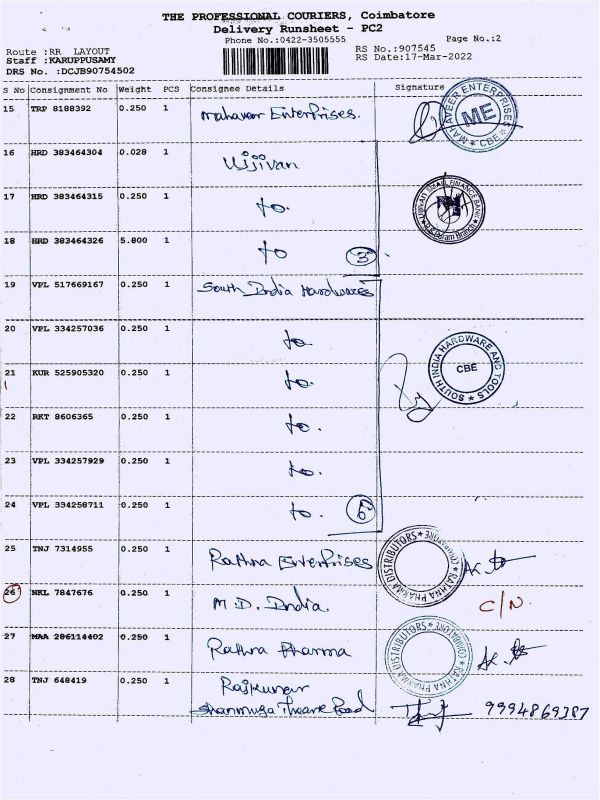 THE PROFESSIONAL COURIERS, Coimbatore
Delivery Runsheet - PC2
Phone No.:0422-3505555 Page No.:2
Route :RR LAYOUT RS No.:907545
Staff :KARUPPUSAMY RS Date:17-Mar-2022
DRS No. :DCJB90754502
S No Consignment No Weight PCS Consignee Details Signature
15 TRP 8188392 0.250 1 Mahaveer Enterprises. MAHAVEER ENTERPRISES ME CBE
16 HRD 383464304 0.028 1 Ujjivan
17 HRD 383464315 0.250 1 to.
18 HRD 383464326 5.800 1 to 3
19 VPL 517669167 0.250 1 South India Hardwares
20 VPL 334257036 0.250 1 to.
21 KUR 525905320 0.250 1 to. SOUTH INDIA HARDWARE AND TOOLS CBE
22 RKT 8606365 0.250 1 to.
23 VPL 334257929 0.250 1 to.
24 VPL 334258711 0.250 1 to. 6
25 TNJ 7314955 0.250 1 Rathna Enterprises RATHNA PHARMA DISTRIBUTORS COIMBATORE
26 NKL 7847676 0.250 1 M.D. India. C/N.
27 MAA 286114402 0.250 1 Rathna Pharma RATHNA PHARMA DISTRIBUTORS COIMBATORE
28 TNJ 648419 0.250 1 Rajkumar
Shanmuga 9994869387